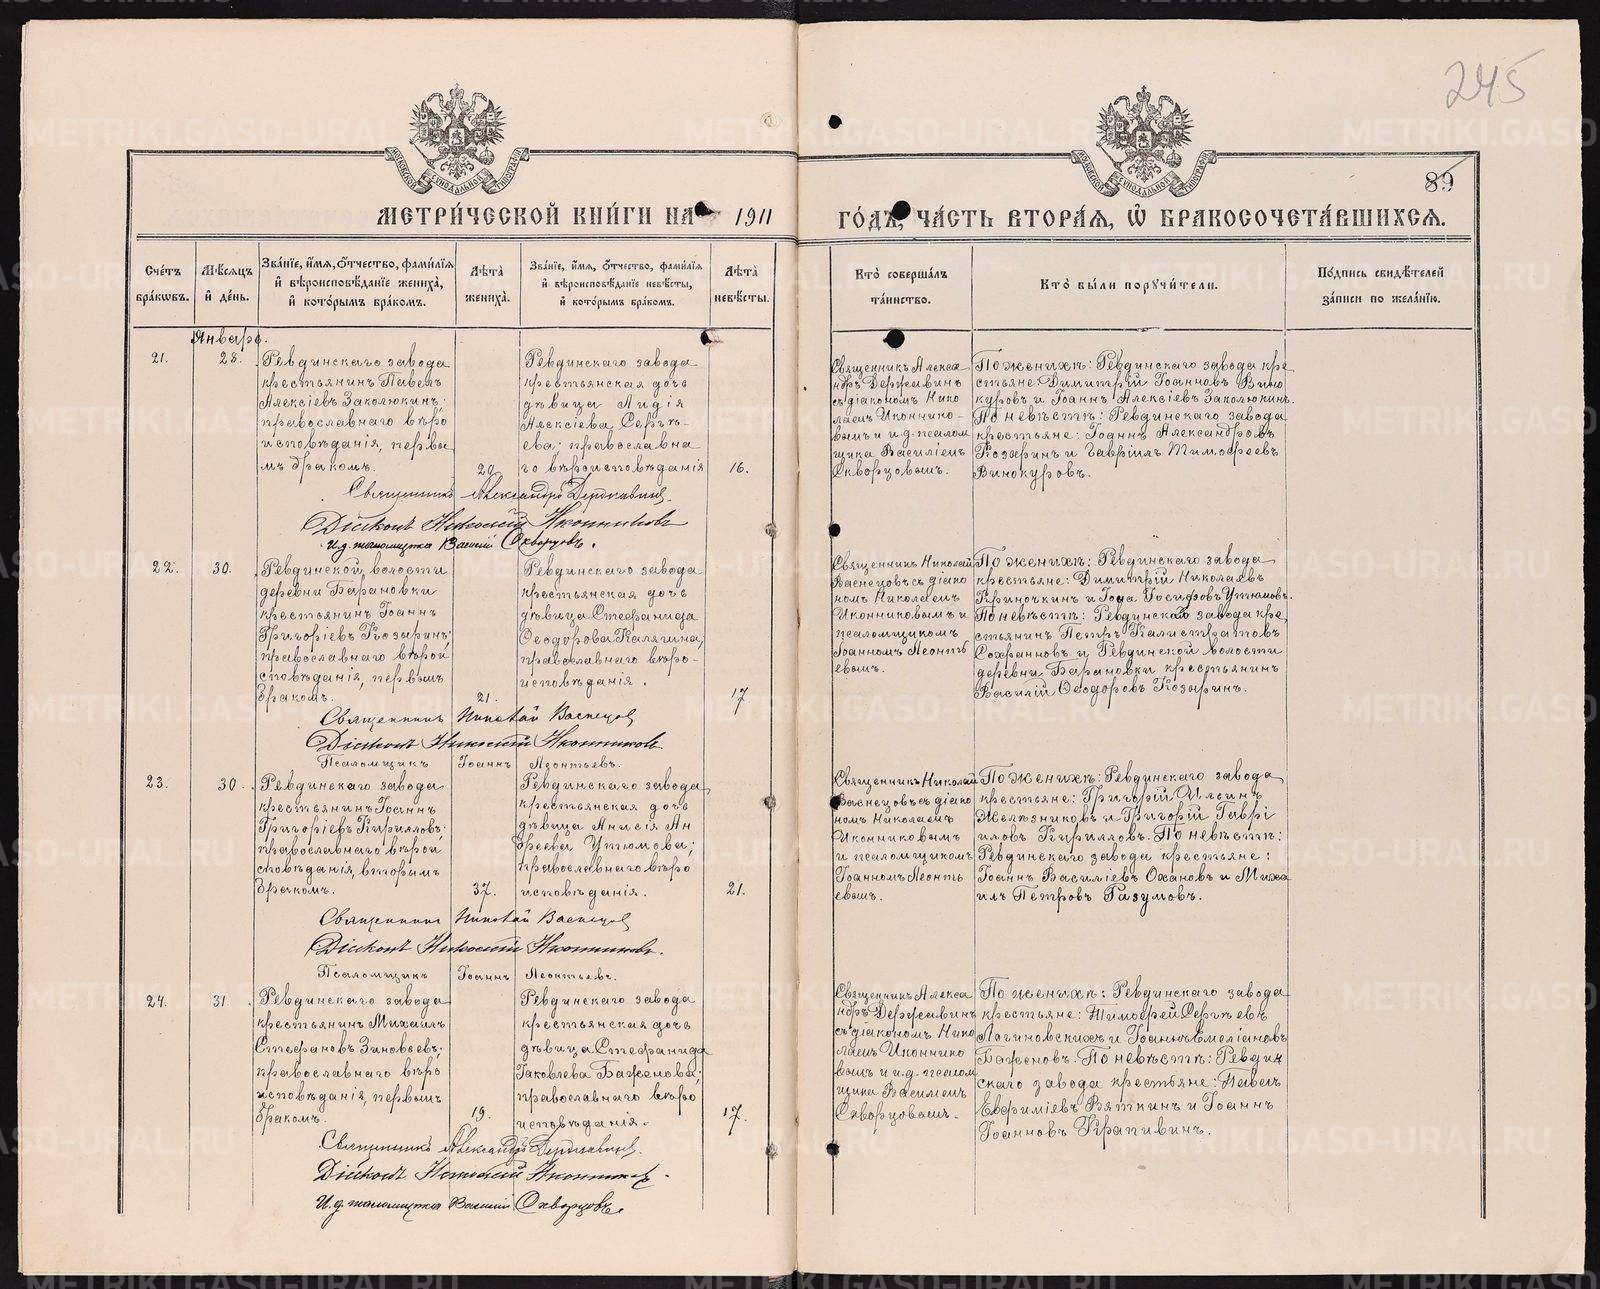 245
89
МЕТРИ́ЧЕСКОЙ КНИ́ГИ НА 1911
ГО́ДЪ, ЧА́СТЬ ВТОРА́Я, Ѡ҆ БРАКОСОЧЕТА́ВШИХСЯ.
Сче́тъ бра́кѡвъ.
Мѣ́сяцъ и҆ де́нь.
Зва́нїе, и҆́мя, ѻ҆́тчество, фами́лїя и҆ вѣроисповѣ́данїе жениха̀, и҆ кото́рымъ бра́комъ.
Лѣ̑та жениха̀.
Зва́нїе, и҆́мя, ѻ҆́тчество, фами́лїя и҆ вѣроисповѣ́данїе невѣ́сты, и҆ кото́рымъ бра́комъ.
Лѣ̑та невѣ́сты.
Кто̀ соверша́лъ та́инство.
Кто̀ бы́ли поручи́тели.
По́дпись свидѣ́телей за́писи по жела́нїю.
Январь.
21.
28.
Ревдинскаго завода
крестьянинъ Павелъ
Алексіевъ Заколюкинъ;
православнаго вѣро
исповѣданія, первы
мъ бракомъ.
20
Ревдинскаго завода
крестьянская дочь
дѣвица Лидія
Алексіева Сергѣ-
ева; православна
го вѣроисповѣданія
16.
Священникъ Алекса
ндръ Державинъ
съ діакономъ Нико
лаемъ Иконнико-
вымъ и и.д. псалом
щика Василіемъ
Скворцовымъ.
По женихѣ: Ревдинскаго завода кре
стьяне: Димитрій Іоанновъ Вино
куровъ и Іоаннъ Алексіевъ Заколюкинъ.
По невѣстѣ: Ревдинскаго завода
крестьяне: Іоаннъ Александровъ
Козыринъ и Гавріилъ Тимофеевъ
Винокуровъ.
Священникъ Александръ Державинъ.
Діаконъ Николай Иконниковъ
И.д. псаломщика Василій Скворцовъ.
22.
30.
Ревдинской волости
деревни Барановки
крестьянинъ Іоаннъ
Григоріевъ Козыринъ;
православнаго вѣрои
сповѣданія, первымъ
бракомъ.
21.
Ревдинскаго завода
крестьянская дочь
дѣвица Стефанида
Ѳеодорова Калягина;
православнаго вѣро-
исповѣданія.
17
Священникъ Николай
Васнецовъ съ діако
номъ Николаемъ
Иконниковымъ и
псаломщикомъ
Іоанномъ Леонть
евымъ.
По женихѣ: Ревдинскаго завода
крестьяне: Димитрій Николаевъ
Криночкинъ и Іона Іосифовъ Утюмовъ.
По невѣстѣ: Ревдинскаго завода кре
стьянинъ Петръ Калистратовъ
Сохранновъ и Ревдинской волости
деревни Барановки крестьянинъ
Василій Ѳеодоровъ Козыринъ.
Священникъ Николай Васнецов
Діаконъ Николай Иконниковъ
Псаломщикъ Іоаннъ Леонтьевъ.
23.
30.
Ревдинскаго завода
крестьянинъ Іоаннъ
Григоріевъ Кирилловъ;
православнаго вѣрои
сповѣданія, вторымъ
бракомъ.
37.
Ревдинскаго завода
крестьянская дочь
дѣвица Анисія Ан
дреева Утюмова;
православнаго вѣро
исповѣданія.
21.
Священникъ Николай
Васнецовъ съ діако
номъ Николаемъ
Иконниковымъ
и псаломщикомъ
Іоанномъ Леонть
евымъ.
По женихѣ: Ревдинскаго завода
крестьяне: Григорій Ильинъ
Желѣзниковъ и Григорій Гаврі
иловъ Кирилловъ. По невѣстѣ:
Ревдинскаго завода крестьяне:
Іоаннъ Василіевъ Охановъ и Миха
илъ Петровъ Разумовъ.
Священникъ Николай Васнецов
Діаконъ Николай Иконниковъ.
Псаломщикъ Іоаннъ Леонтьевъ.
24.
31.
Ревдинскаго завода
крестьянинъ Михаилъ
Стефановъ Зиновьевъ;
православнаго вѣро
исповѣданія, первымъ
бракомъ.
19.
Ревдинскаго завода
крестьянская дочь
дѣвица Стефанида
Іаковлева Баженова;
православнаго вѣро
исповѣданія.
17.
Священникъ Алекса
ндръ Державинъ
съ діакономъ Нико
лаемъ Иконнико
вымъ и и.д. псалом
щика Василіемъ
Скворцовымъ.
По женихѣ: Ревдинскаго завода
крестьяне: Тимофей Сергѣевъ
Логиновскихъ и Іоаннъ Емеліановъ
Баженовъ. По невѣстѣ: Ревдин
скаго завода крестьяне: Павелъ
Евфиміевъ Вяткинъ и Іоаннъ
Іоанновъ Крапивинъ.
Священникъ Александръ Державинъ.
Діаконъ Николай Иконниковъ.
И.д. псаломщика Василій Скворцовъ.
METRIKI.GASO-URAL.RU